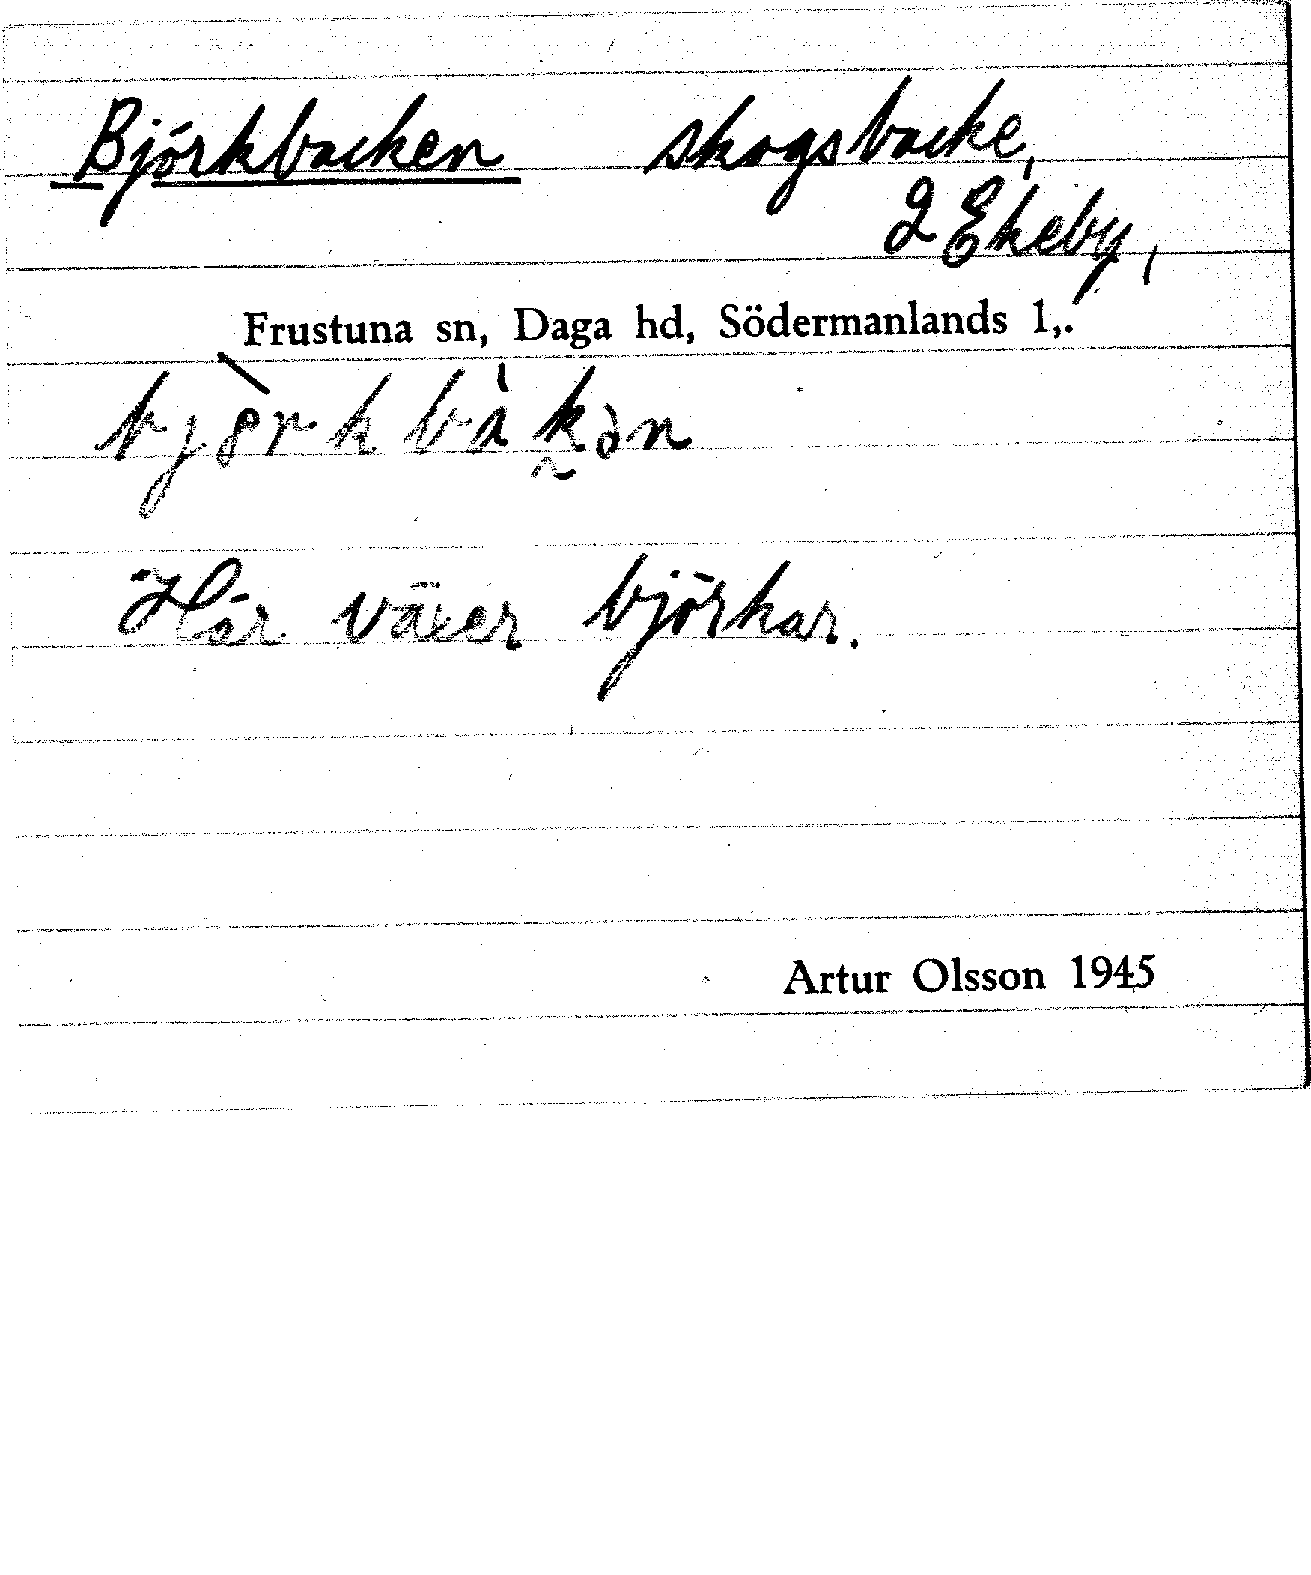 Björkbacken skogsbacke,
2 Ekeby,
Frustuna sn, Daga hd, Södermanlands l,.
bjòrkbákən
Här växer björkar.
Artur Olsson 1945